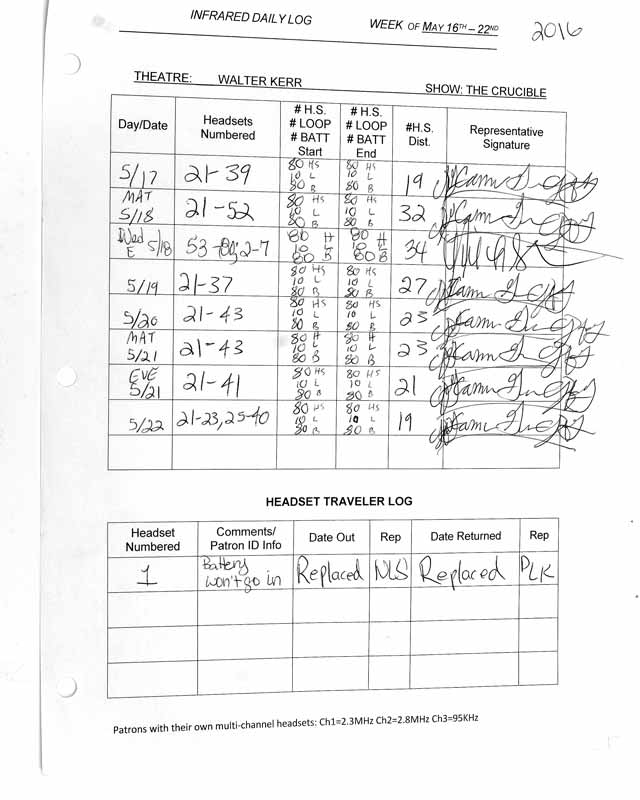 INFRARED DAILY LOG WEEK OF MAY 16TH – 22ND 2016
THEATRE: WALTER KERR SHOW: THE CRUCIBLE
Day/Date Headsets Numbered # H.S. # LOOP # BATT Start # H.S. # LOOP # BATT End #H.S. Dist. Representative Signature
5/17 21-39 80 HS 10 L 80 B 80 HS 10 L 80 B 19
MAT 5/18 21-52 80 HS 10 L 80 B 80 HS 10 L 80 B 32
Wed E 5/18 53- 2-7 80 H 10 L 80 B 80 H 10 L 80 B 34
5/19 21-37 80 HS 10 L 80 B 80 HS 10 L 80 B 27
5/20 21-43 80 HS 10 L 80 B 80 HS 10 L 80 B 23
MAT 5/21 21-43 80 H 10 L 80 B 80 H 10 L 80 B 23
EVE 5/21 21-41 80 HS 10 L 80 B 80 HS 10 L 80 B 21
5/22 21-23, 25-40 80 HS 10 L 80 B 80 HS 10 L 80 B 19
HEADSET TRAVELER LOG
Headset Numbered Comments/ Patron ID Info Date Out Rep Date Returned Rep
1 Battery won't go in Replaced NLS Replaced DLK
Patrons with their own multi-channel headsets: Ch1=2.3MHz Ch2=2.8MHz Ch3=95KHz